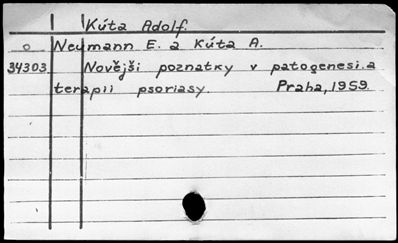 Kúta Adolf.
o Neumann E. a Kúta A.
34303 Novějši poznatky v patogenesi a
terapii psoriasy. Praha, 1959.